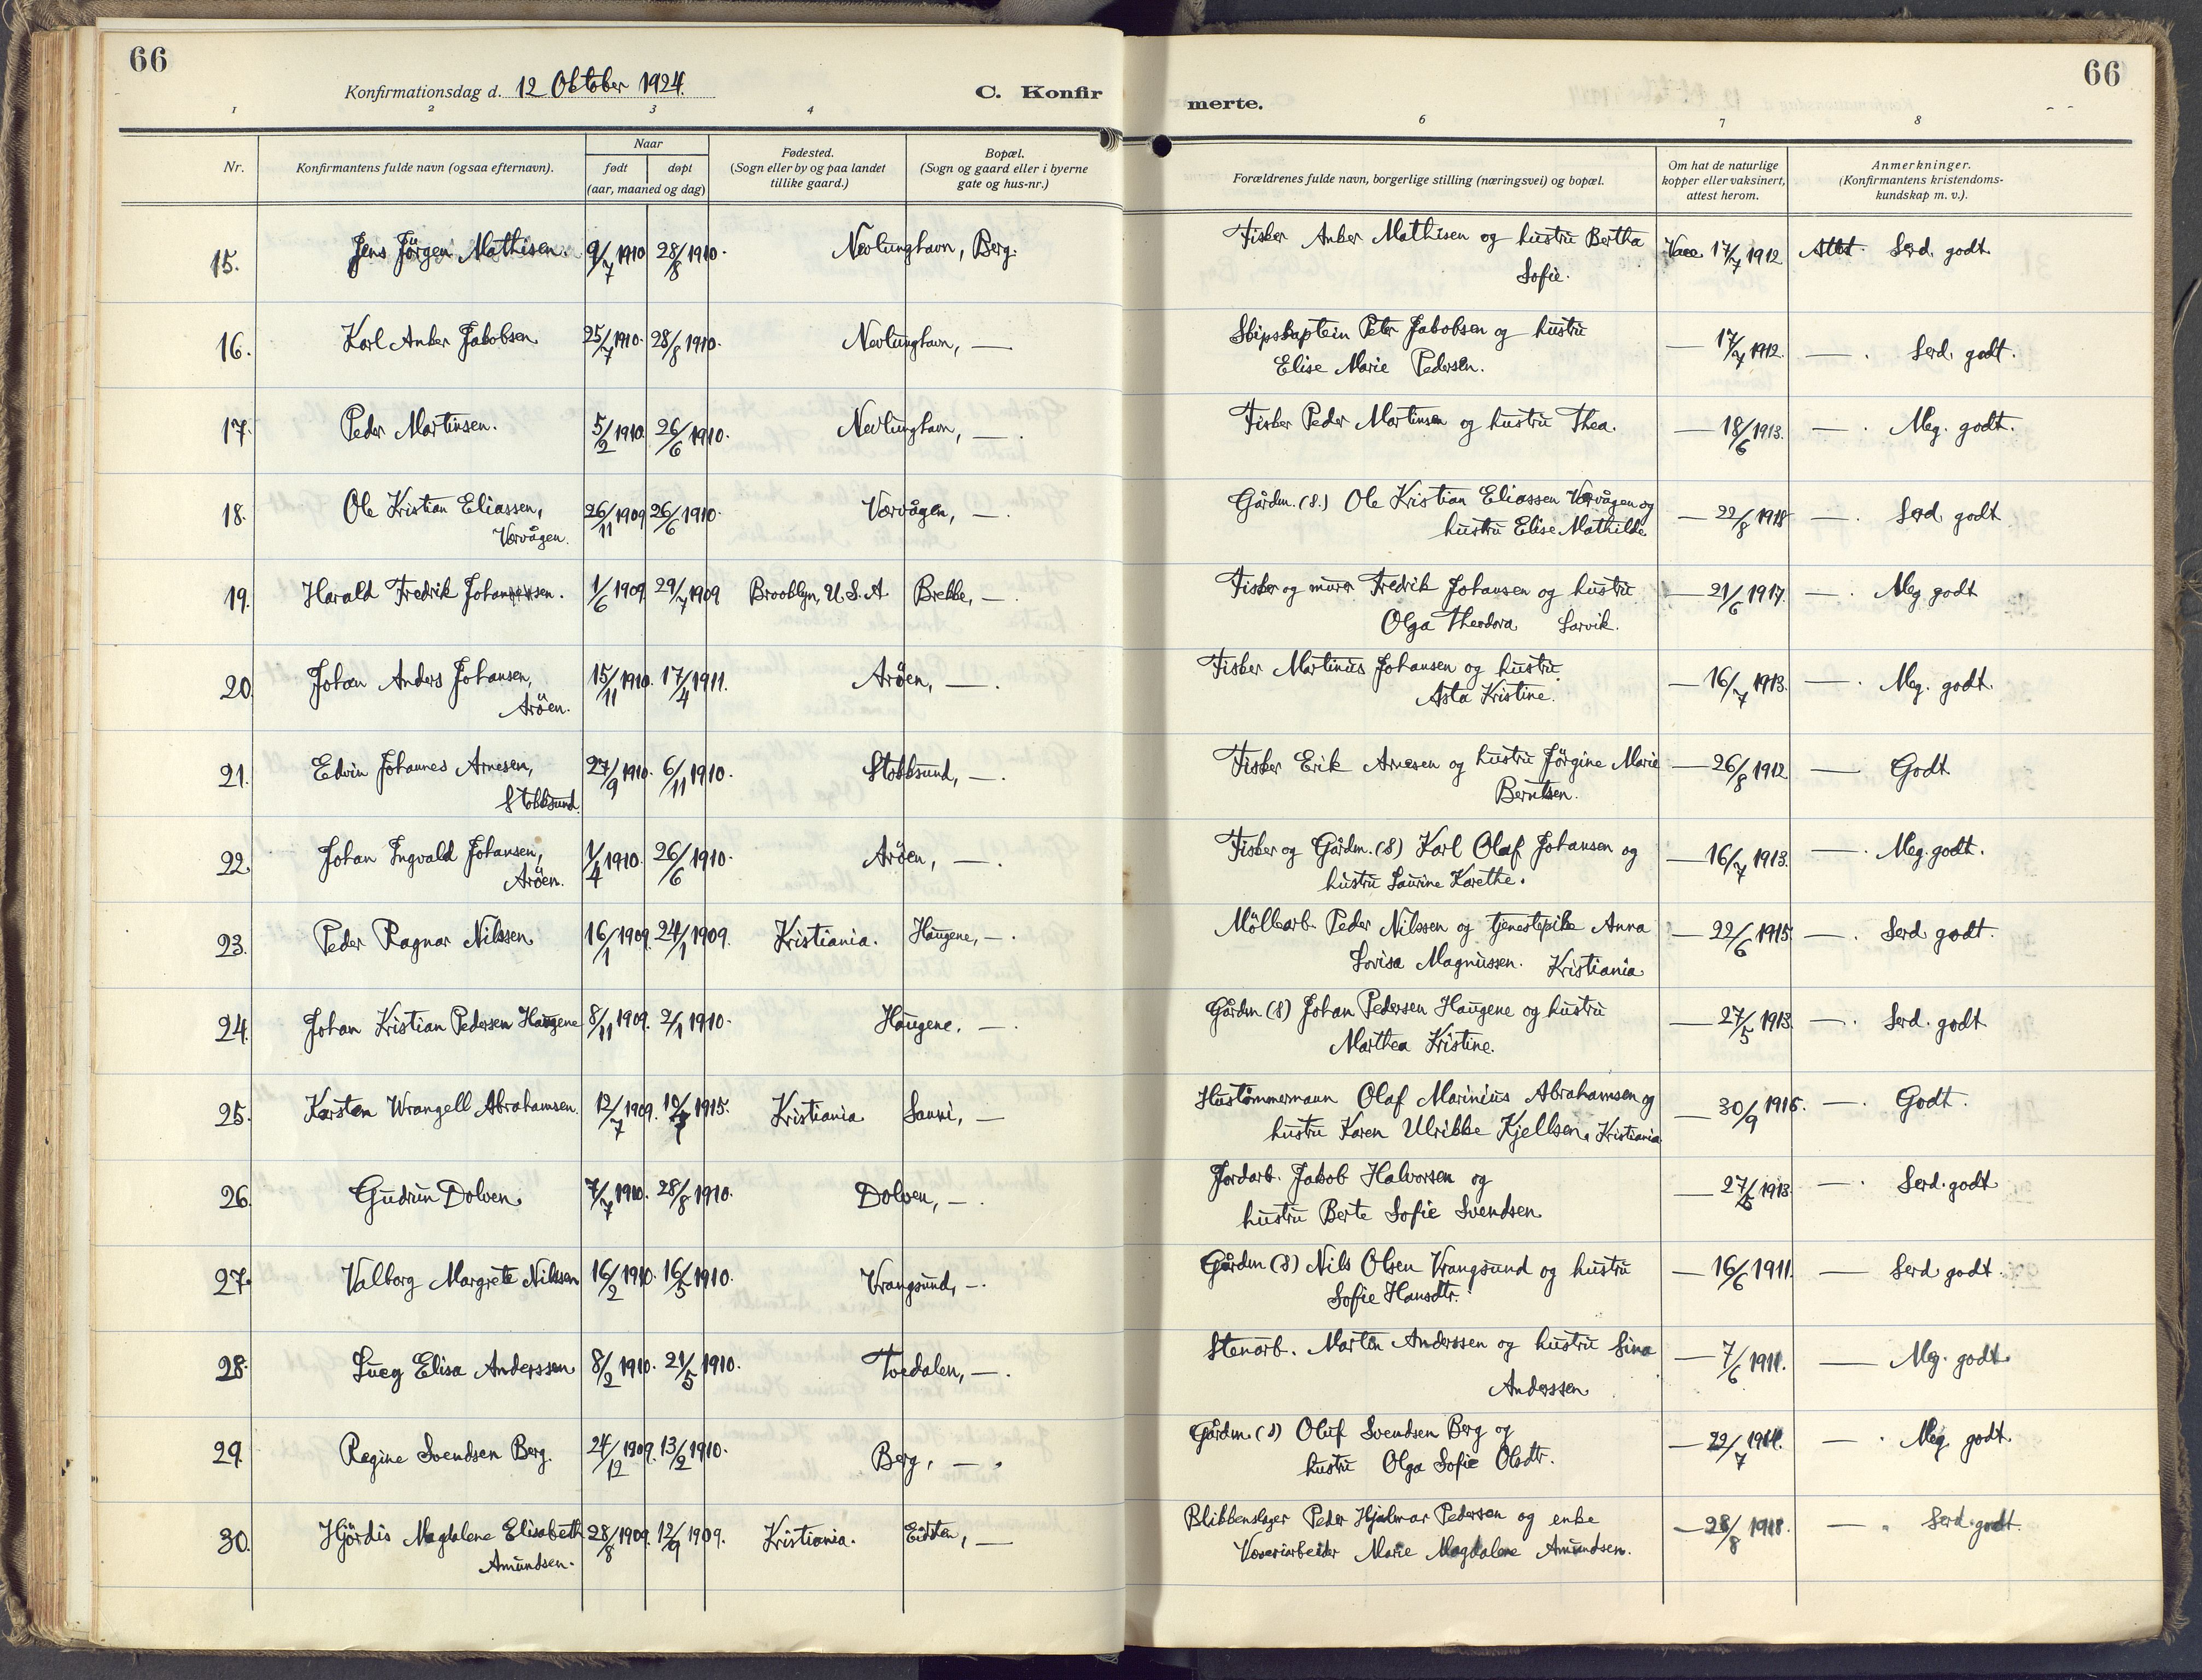 66
Konfirmationsdag d. 12 Oktober 1924.
C. Konfir
merte.
66
1 2 3 4 6 7 8
Nr. Konfirmantens fulde navn (ogsaa efternavn). Naar født døpt (aar, maaned og dag) Fødested. (Sogn eller by og paa landet tillike gaard.) Bopæl. (Sogn og gaard eller i byerne gate og hus-nr.) Forældrenes fulde navn, borgerlige stilling (næringsvei) og bopæl. Om hat de naturlige kopper eller vaksinert, attest herom. Anmerkninger. (Konfirmantens kristendoms-kundskap m. v.).
15. Jens Jörgen Mathisen. 9/7 1910 28/8 1910. Nevlunghavn, Berg. Fisker Anker Mathisen og hustru Bertha Vacc. 17/7 1912 Attst. Serd. godt
Sofie.
16. Karl Anker Jakobsen 25/7 1910. 28/8 1910. Nevlunghavn, — Skipskaptein Peter Jakobsen og hustru — 17/7 1912. — . Serd. godt.
Elise Marie Pedersen.
17. Peder Martinsen. 5/2 1910. 26/6 1910. Nevlunghavn, — . Fisker Peder Martinsen og hustru Thea. — 18/6 1913. — . Meg. godt.
18. Ole Kristian Eliassen, 26/11 1909 26/6 1910. Värvågen, — . Gårdm. (S.) Ole Kristian Eliassen Värvågen og — 22/8 1918 — . Serd. godt
Värvågen. hustru Elise Mathilde
19. Harald Fredrik Johansen. 1/6 1909. 29/7 1909 Brooklyn, U.S.A Brekke, — . Fisker og murer Fredrik Johansen og hustru — 21/6 1917. — . Meg godt
Olga Theodora Larvik.
20. Johan Anders Johansen, 15/11 1910. 17/4 1911. Aröen, — . Fisker Martinus Johansen og hustru — 16/7 1913. — . Meg. godt.
Aröen. Asta Kristine.
21. Edvin Johannes Arnesen, 27/9 1910. 6/11 1910. Stokksund, — . Fisker Erik Arnesen og hustru Jörgine Marie — 26/8 1912 — Godt
Stokksund. Berntsen.
22. Johan Ingvald Johansen, 1/4 1910. 26/6 1910. Aröen, — . Fisker og Gårdm. (S) Karl Olaf Johansen og — 16/7 1913. — . Meg. godt.
Aröen. hustru Laurine Karethe.
23. Peder Ragnar Nilssen 16/1 1909. 24/1 1909. Kristiania. Haugene, — . Möllearb. Peder Nilssen og tjenestepike Anna — 22/6 1915. — . Serd godt.
Lovisa Magnussen. Kristiania
24. Johan Kristian Pedersen Haugene 8/11 1909. 2/1 1910. Haugene, — . Gårdm (S) Johan Pedersen Haugene og hustru — 27/5 1913. — . Serd. godt
Marthea Kristine.
25. Karsten Wrangell Abrahamsen. 12/7 1909. 1915. Kristiania — Hustömmermann Olaf Marinius Abrahamsen og — 30/9 1916. — . Godt.
hustru Karen Ulrikke Kjellsen, Kristiania
26. Gudrun Dolven. 7/7 1910. 28/8 1910. Dolven, — . Jordarb. Jakob Halvorsen og — 27/5 1913. — . Serd. godt
hustru Berte Sofie Svendsen
27. Valborg Margrete Nilssen 16/2 1910. 16/5 1910. Vrangsund, — . Gårdm (S) Nils Olsen Vrangsund og hustru — 16/6 1911. — Serd godt.
Sofie Hansdtr.
28. Lucy Elisa Anderssen 8/2 1910. 21/5 1910. Tvedalen, — . Stenarb. Martin Anderssen og hustru Sina — 7/6 1911. — Meg. godt.
Anderssen
29. Regine Svendsen Berg. 24/12 1909. 13/2 1910. Berg, — . Gårdm. (S) Oluf Svendsen Berg og — 22/7 1914. — . Meg. godt.
hustru Olga Sofie Olsdtr.
30. Hjördis Magdalene Elisabeth 28/8 1909. 12/9 1909. Kristiania. Eidsten, — Blikkenslager Peder Hjalmar Pedersen og enke — 28/8 1918. — . Serd. godt.
Amundsen. Væveriarbeider Marie Magdalene Amundsen.